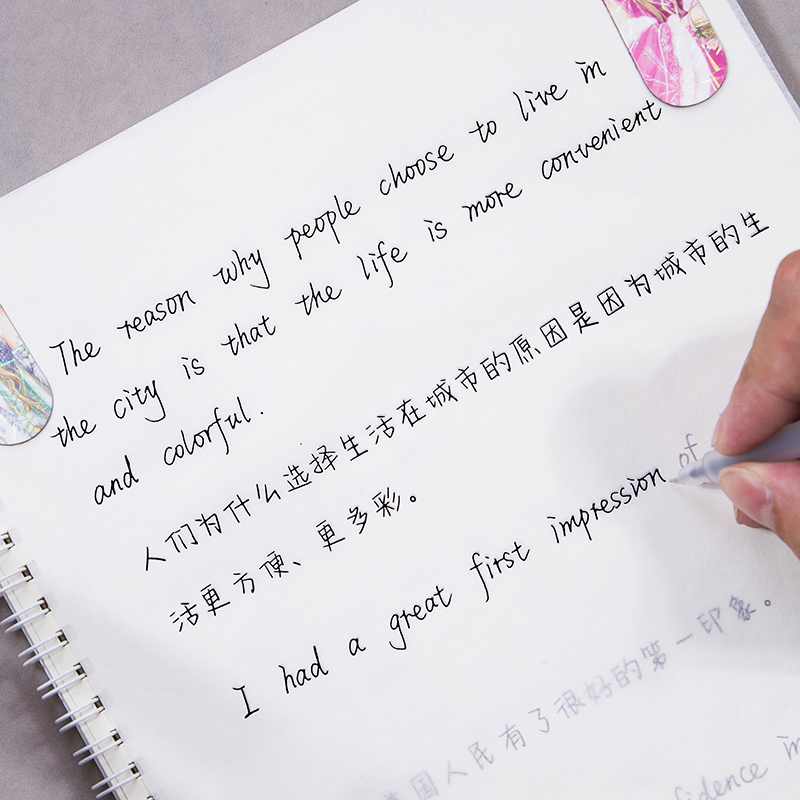 The reason why people choose to live in
the city is that the life is more convenient
and colorful.
人们为什么选择生活在城市的原因是因为城市的生
活更方便、更多彩。
I had a great first impression of
国人民有了很好的第一印象。